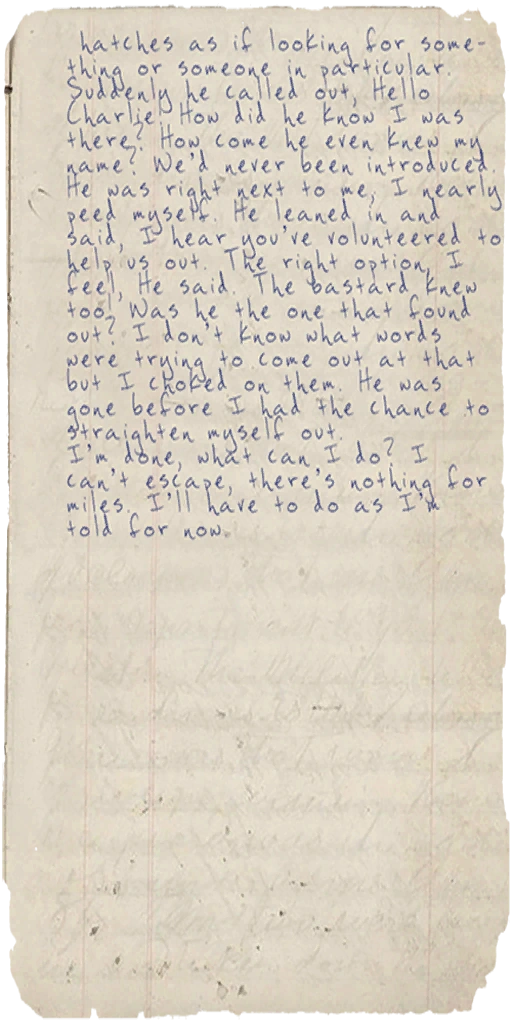 hatches as if looking for some-
thing or someone in particular.
Suddenly he called out, Hello
Charlie. How did he know I was
there? How come he even knew my
name? We'd never been introduced.
He was right next to me, I nearly
peed myself. He leaned in and
said, I hear you've volunteered to
help us out. The right option, I
feel, He said. The bastard knew
too? Was he the one that found
out? I don't know what words
were trying to come out at that
but I choked on them. He was
gone before I had the chance to
straighten myself out.
I'm done, what can I do? I
can't escape, there's nothing for
miles. I'll have to do as I'm
told for now.